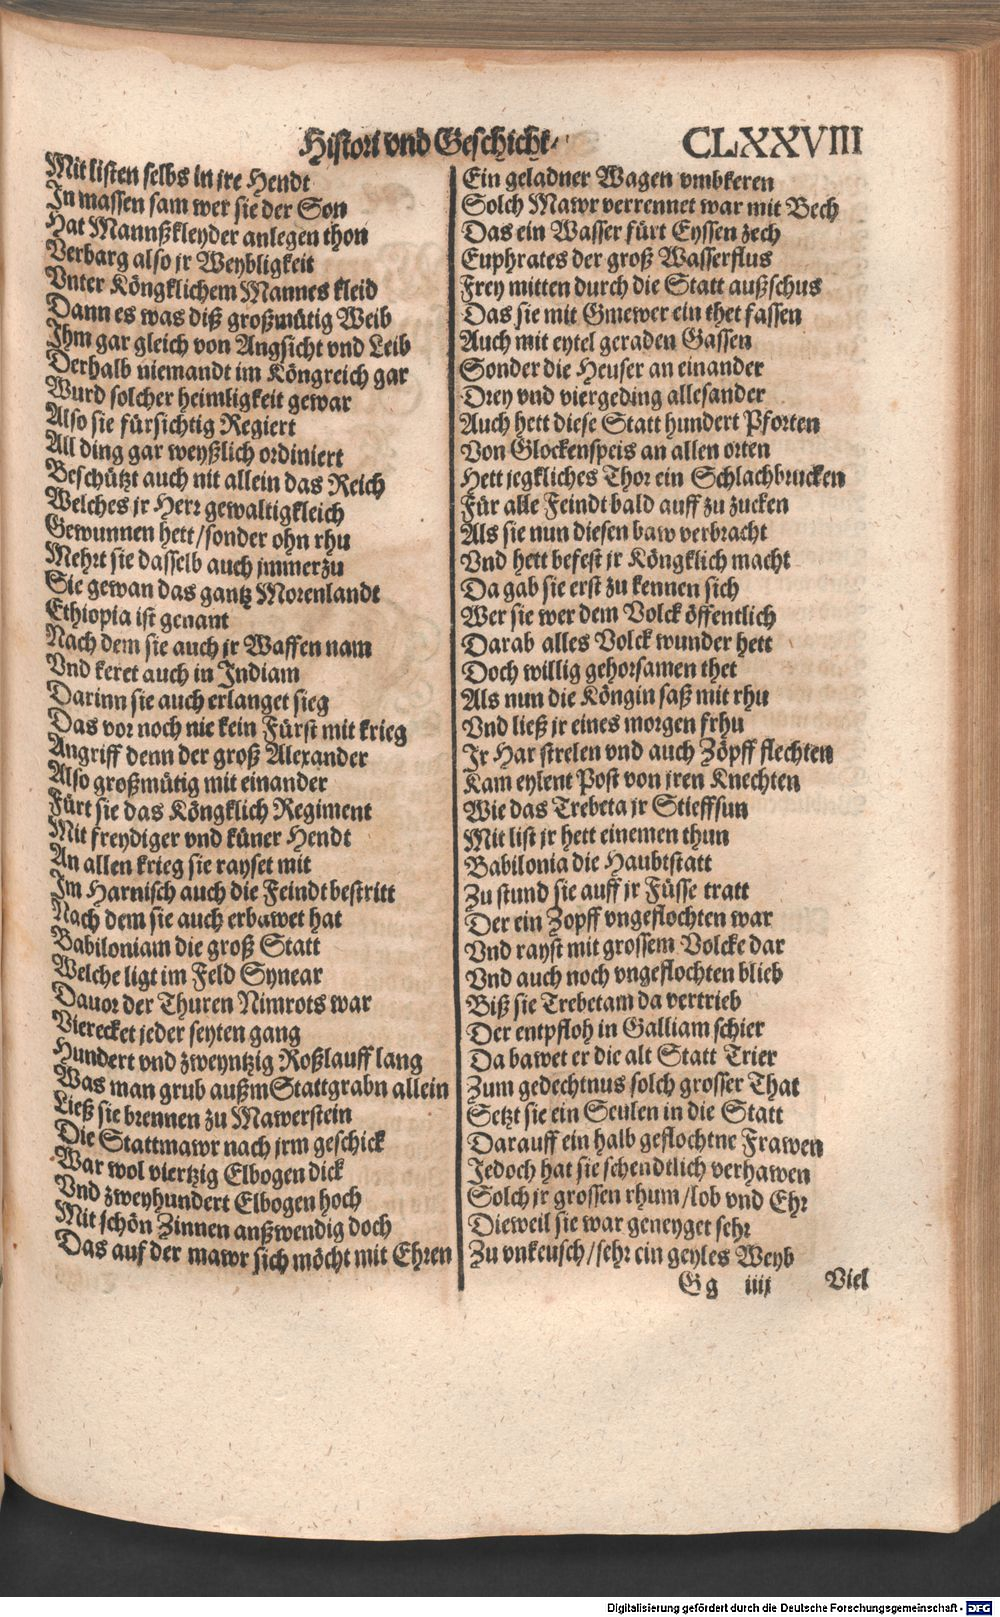 Histori vnd Geschicht/
CLXXVIII
Mit listen selbs in jre Hendt
In massen sam wer sie der Son
Hat Mannßkleyder anlegen thon
Verbarg also jr Weybligkeit
Vnter Köngklichem Mannes kleid
Dann es was diß großmütig Weib
Ihm gar gleich von Angsicht vnd Leib
Derhalb niemandt im Köngreich gar
Wurd solcher heimligkeit gewar
Also sie fürsichtig Regiert
All ding gar weyßlich ordiniert
Beschützt auch nit allein das Reich
Welches jr Herr gewaltigkleich
Gewunnen hett/sonder ohn rhu
Mehrt sie dasselb auch jmmerzu
Sie gewan das gantz Morenlandt
Ethiopia ist genant
Nach dem sie auch jr Waffen nam
Vnd keret auch in Indiam
Darinn sie auch erlanget sieg
Das vor noch nie kein Fürst mit krieg
Angriff denn der groß Alexander
Also großmütig mit einander
Fürt sie das Köngklich Regiment
Mit freydiger vnd küner Hendt
An allen krieg sie rayset mit
Im Harnisch auch die Feindt bestritt
Nach dem sie auch erbawet hat
Babiloniam die groß Statt
Welche ligt im Feld Synear
Dauor der Thuren Nimrots war
Vierecket jeder seyten gang
Hundert vnd zweyntzig Roßlauff lang
Was man grub außm Stattgrabn allein
Ließ sie brennen zu Mawerstein
Die Stattmawr nach jrm geschick
War wol viertzig Elbogen dick
Vnd zweyhundert Elbogen hoch
Mit schön Zinnen anßwendig doch
Das auf der mawr sich möcht mit Ehren
Ein geladner Wagen vmbkeren
Solch Mawr verrennet war mit Bech
Das ein Wasser fürt Eyssen zech
Euphrates der groß Wasserflus
Frey mitten durch die Statt außschus
Das sie mit Gmewer ein thet fassen
Auch mit eytel geraden Gassen
Sonder die Heuser an einander
Drey vnd viergeding allesander
Auch hett diese Statt hundert Pforten
Von Glockenspeis an allen orten
Hett jegkliches Thor ein Schlachbrucken
Für alle Feindt bald auff zu zucken
Als sie nun diesen baw verbracht
Vnd hett befest jr Köngklich macht
Da gab sie erst zu kennen sich
Wer sie wer dem Volck öffentlich
Darab alles Volck wunder hett
Doch willig gehorsamen thet
Als nun die Köngin saß mit rhu
Vnd ließ jr eines morgen frhu
Jr Har strelen vnd auch Zöpff flechten
Kam eylent Post von jren Knechten
Wie das Trebeta jr Stieffsun
Mit list jr hett einemen thun
Babilonia die Haubtstatt
Zu stund sie auff jr Füsse tratt
Der ein Zopff vngeflochten war
Vnd rayst mit grossem Volcke dar
Vnd auch noch vngeflochten blieb
Biß sie Trebetam da vertrieb
Der entpfloh in Galliam schier
Da bawet er die alt Statt Trier
Zum gedechtnus solch grosser That
Setzt sie ein Seulen in die Statt
Darauff ein halb geflochtne Frawen
Jedoch hat sie schendtlich verhawen
Solch jr grossen rhum/lob vnd Ehr
Dieweil sie war geneyget sehr
Zu vnkeusch/sehr ein geyles Weyb
Gg iiij
Viel
Digitalisierung gefördert durch die Deutsche Forschungsgemeinschaft - DFG